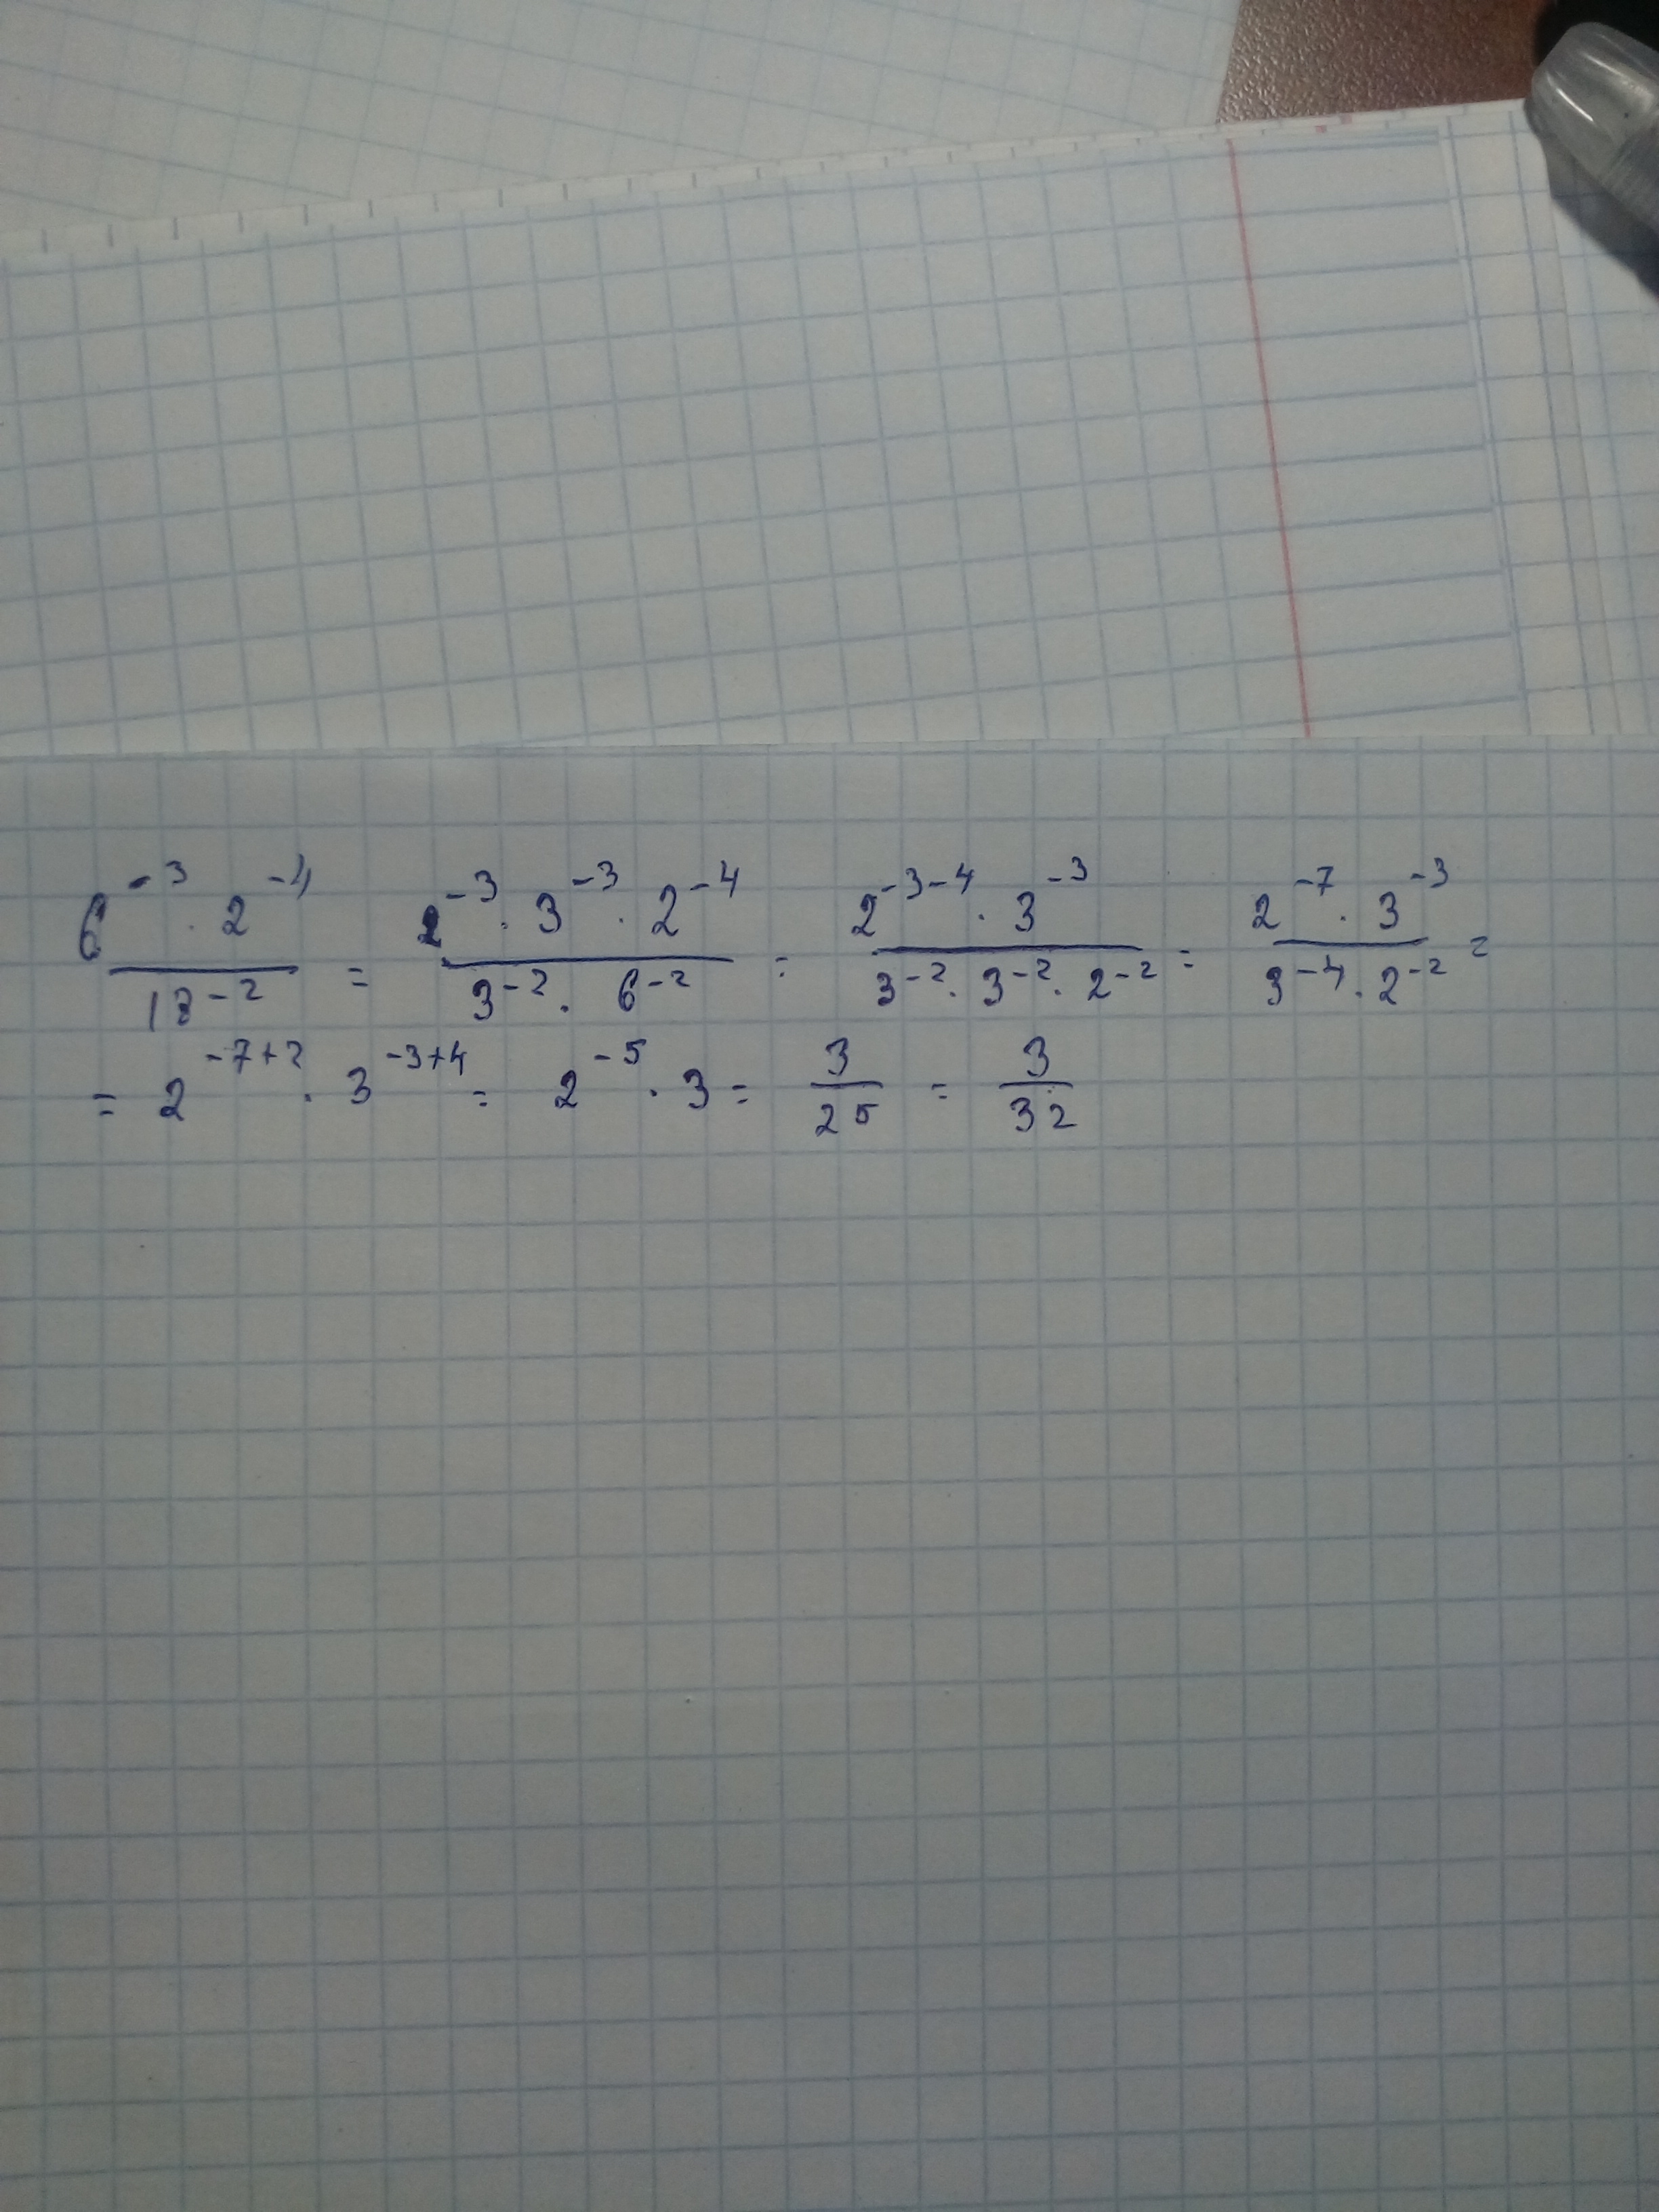 6⁻³ · 2⁻⁴ / 18⁻² = 2⁻³ · 3⁻³ · 2⁻⁴ / 3⁻² · 6⁻² = 2⁻³⁻⁴ · 3⁻³ / 3⁻² · 3⁻² · 2⁻² = 2⁻⁷ · 3⁻³ / 3⁻⁴ · 2⁻² =
= 2⁻⁷⁺² · 3⁻³⁺⁴ = 2⁻⁵ · 3 = 3 / 25 = 3 / 32